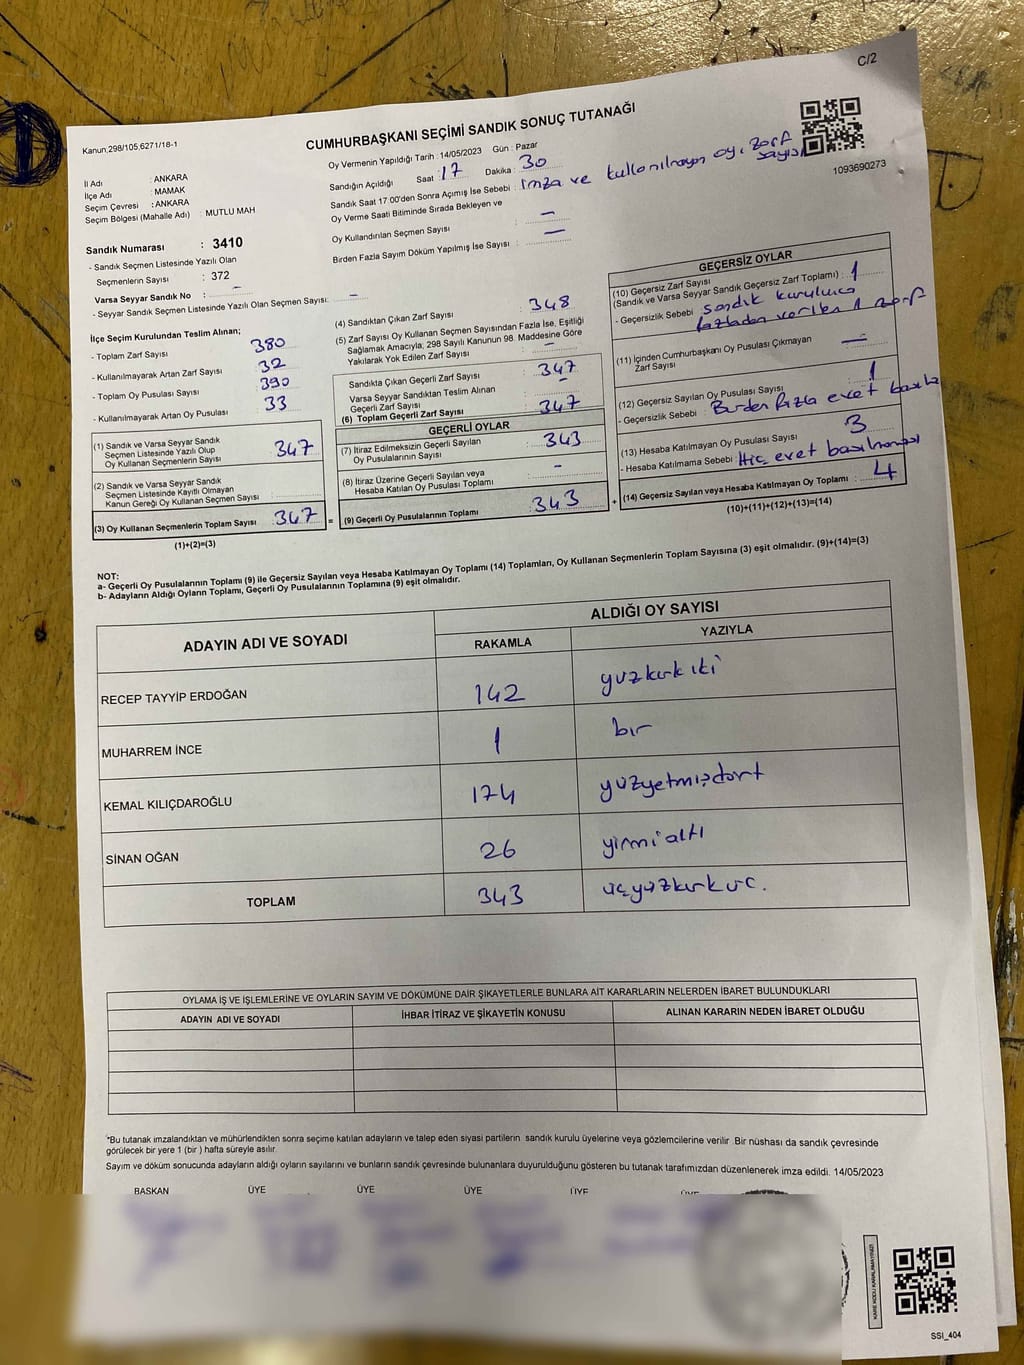 C/2
Kanun,298/105,6271/18-1
CUMHURBAŞKANI SEÇİMİ SANDIK SONUÇ TUTANAĞI
1093690273
İl Adı : ANKARA
İlçe Adı : MAMAK
Seçim Çevresi : ANKARA
Seçim Bölgesi (Mahalle Adı) : MUTLU MAH
Oy Vermenin Yapıldığı Tarih : 14/05/2023 Gün : Pazar
Sandığın Açıldığı Saat : 17 Dakika : 30
Sandık Saat 17:00'den Sonra Açımış İse Sebebi : imza ve kullanılmayan oy, zarf sayısı
Oy Verme Saati Bitiminde Sırada Bekleyen ve
Oy Kullandırılan Seçmen Sayısı : –
Birden Fazla Sayım Döküm Yapılmış İse Sayısı : –
Sandık Numarası : 3410
- Sandık Seçmen Listesinde Yazılı Olan
Seçmenlerin Sayısı : 372
Varsa Seyyar Sandık No : –
- Seyyar Sandık Seçmen Listesinde Yazılı Olan Seçmen Sayısı: –
İlçe Seçim Kurulundan Teslim Alınan;
- Toplam Zarf Sayısı 380
- Kullanılmayarak Artan Zarf Sayısı 32
- Toplam Oy Pusulası Sayısı 390
- Kullanılmayarak Artan Oy Pusulası 33
(1) Sandık ve Varsa Seyyar Sandık
Seçmen Listesinde Yazılı Olup
Oy Kullanan Seçmenlerin Sayısı : 347
(2) Sandık ve Varsa Seyyar Sandık
Seçmen Listesinde Kayıtlı Olmayan
Kanun Gereği Oy Kullanan Seçmen Sayısı :
(3) Oy Kullanan Seçmenlerin Toplam Sayısı : 347 =
(1)+(2)=(3)
(4) Sandıktan Çıkan Zarf Sayısı : 348
(5) Zarf Sayısı Oy Kullanan Seçmen Sayısından Fazla İse, Eşitliği
Sağlamak Amacıyla; 298 Sayılı Kanunun 98. Maddesine Göre
Yakılarak Yok Edilen Zarf Sayısı : –
Sandıkta Çıkan Geçerli Zarf Sayısı : 347
Varsa Seyyar Sandıktan Teslim Alınan
Geçerli Zarf Sayısı : –
(6) Toplam Geçerli Zarf Sayısı : 347
GEÇERLİ OYLAR
(7) İtiraz Edilmeksizin Geçerli Sayılan
Oy Pusulalarının Sayısı : 343
(8) İtiraz Üzerine Geçerli Sayılan veya
Hesaba Katılan Oy Pusulası Toplamı : –
(9) Geçerli Oy Pusulalarının Toplamı : 343 +
GEÇERSİZ OYLAR
(10) Geçersiz Zarf Sayısı
(Sandık ve Varsa Seyyar Sandık Geçersiz Zarf Toplamı) : 1
- Geçersizlik Sebebi : sandık kurulunca
fazladan verilen 1 zarf
(11) İçinden Cumhurbaşkanı Oy Pusulası Çıkmayan
Zarf Sayısı : –
(12) Geçersiz Sayılan Oy Pusulası Sayısı : 1
- Geçersizlik Sebebi : Birden fazla evet
(13) Hesaba Katılmayan Oy Pusulası Sayısı : 3
- Hesaba Katılmama Sebebi : Hiç evet basılmaması
(14) Geçersiz Sayılan veya Hesaba Katılmayan Oy Toplamı : 4
(10)+(11)+(12)+(13)=(14)
NOT:
a- Geçerli Oy Pusulalarının Toplamı (9) ile Geçersiz Sayılan veya Hesaba Katılmayan Oy Toplamı (14) Toplamları, Oy Kullanan Seçmenlerin Toplam Sayısına (3) eşit olmalıdır. (9)+(14)=(3)
b- Adayların Aldığı Oyların Toplamı, Geçerli Oy Pusulalarının Toplamına (9) eşit olmalıdır.
ADAYIN ADI VE SOYADI ALDIĞI OY SAYISI
RAKAMLA YAZIYLA
RECEP TAYYİP ERDOĞAN 142 yüzkırkiki
MUHARREM İNCE 1 bir
KEMAL KILIÇDAROĞLU 174 yüzyetmişdört
SİNAN OĞAN 26 yirmialtı
TOPLAM 343 üçyüzkırküç.
OYLAMA İŞ VE İŞLEMLERİNE VE OYLARIN SAYIM VE DÖKÜMÜNE DAİR ŞİKAYETLERLE BUNLARA AİT KARARLARIN NELERDEN İBARET BULUNDUKLARI
ADAYIN ADI VE SOYADI İHBAR İTİRAZ VE ŞİKAYETİN KONUSU ALINAN KARARIN NEDEN İBARET OLDUĞU
*Bu tutanak imzalandıktan ve mühürlendikten sonra seçime katılan adayların ve talep eden siyasi partilerin sandık kurulu üyelerine veya gözlemcilerine verilir. Bir nüshası da sandık çevresinde
görülecek bir yere 1 (bir) hafta süreyle asılır.
Sayım ve döküm sonucunda adayların aldığı oyların sayılarını ve bunların sandık çevresinde bulunanlara duyurulduğunu gösteren bu tutanak tarafımızdan düzenlenerek imza edildi. 14/05/2023
BAŞKAN ÜYE ÜYE ÜYE ÜYE ÜYE
KARE KODU KARALAMAYINIZ!
SSI_404